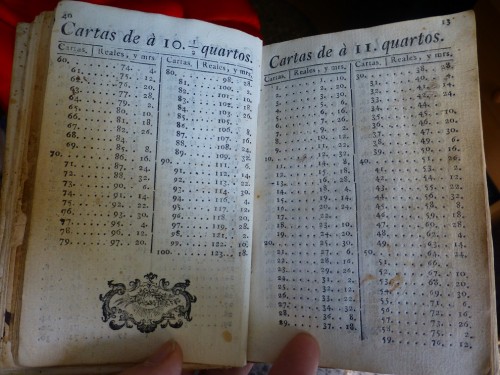 40
Cartas de à 10. 1/2 quartos.
Cartas. Reales, y mrs. Cartas. Reales, y mrs.
60. 74. 4. 80. 98. 28.
61. 75. 12. 81. 100. 2.
62. 76. 20. 82. 101. 10.
63. 77. 28. 83. 102. 18.
64. 79. 2. 84. 103. 26.
65. 80. 10. 85. 105.
66. 81. 18. 86. 106. 8.
67. 82. 26. 87. 107. 16.
68. 84. 88. 108. 24.
69. 85. 8. 89. 109. 32.
70. 86. 16. 90. 111. 6.
71. 87. 24. 91. 112. 14.
72. 88. 32. 92. 113. 22.
73. 90. 6. 93. 114. 30.
74. 91. 14. 94. 116. 4.
75. 92. 22. 95. 117. 12.
76. 93. 30. 96. 118. 20.
77. 95. 4. 97. 119. 28.
78. 96. 12. 98. 121. 2.
79. 97. 20. 99. 122. 10.
100. 123. 18.
Cartas de à 11. quartos.
Cartas. Reales, y mrs. Cartas. Reales, y mrs.
1. 1. 10. 30. 38. 28.
2. 2. 20. 31. 40. 4.
3. 3. 30. 32. 41. 14.
4. 5. 6. 33. 42. 24.
5. 6. 16. 34. 44.
6. 7. 26. 35. 45. 10.
7. 9. 2. 36. 46. 20.
8. 10. 12. 37. 47. 30.
9. 11. 22. 38. 49. 6.
10. 12. 32. 39. 50. 16.
11. 14. 8. 40. 51. 26.
12. 15. 18. 41. 53. 2.
13. 16. 28. 42. 54. 12.
14. 18. 4. 43. 55. 22.
15. 19. 14. 44. 56. 32.
16. 20. 24. 45. 58. 8.
17. 22. 46. 59. 18.
18. 23. 10. 47. 60. 28.
19. 24. 20. 48. 62. 4.
20. 25. 30. 49. 63. 14.
21. 27. 6. 50. 64. 24.
22. 28. 16. 51. 66.
23. 29. 26. 52. 67. 10.
24. 31. 2. 53. 68. 20.
25. 32. 12. 54. 69. 30.
26. 33. 22. 55. 71. 6.
27. 34. 32. 56. 72. 16.
28. 36. 8. 57. 73. 26.
29. 37. 18. 58. 75. 2.
59. 76. 12.